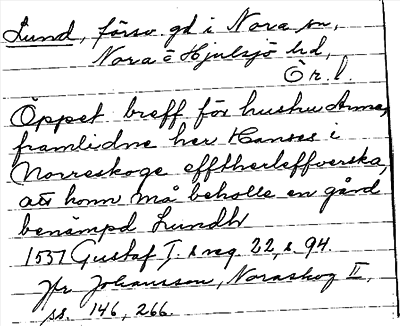 Lund, försv. gd i Nora sn,
Nora ö Hjulsjö hd,
Ör. l.
Öppet breff för hustru Anna,
framlidne her Hanses i
Norreskoge efftherleffverska,
att hom må beholle en gård
benämpd Lundh
1537 Gustaf I. s reg. 22, s. 94.
Jfr Johansson, Noraskog II,
ss. 146, 266.